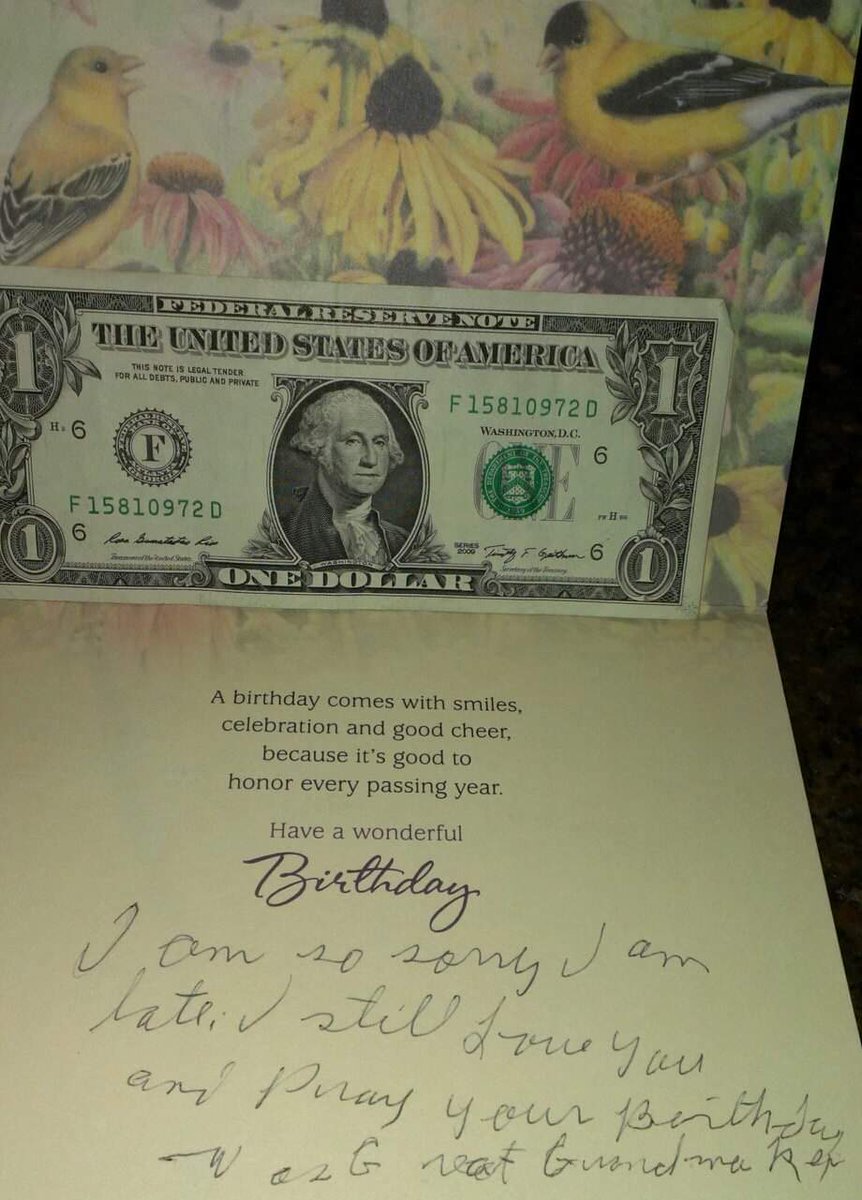 FEDERAL RESERVE NOTE
THE UNITED STATES OF AMERICA
1 1
THIS NOTE IS LEGAL TENDER
FOR ALL DEBTS, PUBLIC AND PRIVATE
F 15810972 D
WASHINGTON, D.C.
H 6 6
F
ONE
F 15810972 D
6 6
SERIES
2009
Treasurer of the United States.
Secretary of the Treasury.
WASHINGTON
1 ONE DOLLAR 1
A birthday comes with smiles,
celebration and good cheer,
because it's good to
honor every passing year.
Have a wonderful
Birthday
I am so sorry I am
late. I still Love you
and Pray your Birthday
was Great Grandma